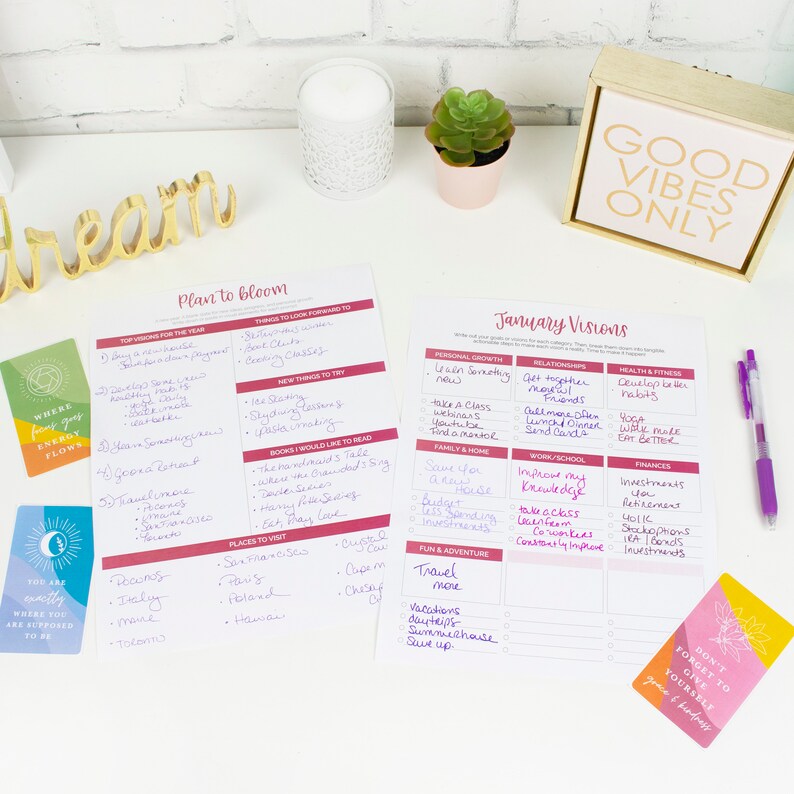 dream
GOOD
VIBES
ONLY
Plan to bloom
TOP VISIONS FOR THE YEAR
1) Buy a new house
Save for a down payment
2) Develop some new
healthy habits
• yoga Daily
• walk more
• eat better
3) Learn Something new
4) Go on a Retreat
5) Travel more
• Poconos
• maine
• San Francisco
• Toronto
THINGS TO LOOK FORWARD TO
• Ski trip this winter
• Book Clubs
• Cooking Classes
NEW THINGS TO TRY
• Ice Skating
• Sky diving lessons
• pasta making
BOOKS I WOULD LIKE TO READ
• The handmaid's Tale
• Where the Crawdad's Sing
• Dexter Series
• Harry Potter Series
• Eat, Pray, Love
PLACES TO VISIT
• Poconos
• Italy
• Maine
• TORONTO
• San Francisco
• Paris
• Poland
• Hawaii
• Crystal
• Cape m
• Chesap
January Visions
Write out your goals or visions for each category. Then, break them down into tangible,
actionable steps to make each vision a reality. Time to make it happen!
PERSONAL GROWTH
• Learn Something
new
take A Class
webinars
Youtube
Find a mentor
RELATIONSHIPS
Get together
more w/
Friends
Call more often
Lunch/Dinner
Send Cards
HEALTH & FITNESS
• Develop better
habits
YOGA
WALK MORE
EAT BETTER
FAMILY & HOME
Save for
A new
House
Budget
less spending
Investments
WORK/SCHOOL
Improve my
Knowledge
take a class
Learn from
Co-workers
Constantly Improve
FINANCES
Investments
for
Retirement
401K
Stock options
IRA | Bonds
Investments
FUN & ADVENTURE
Travel
more
Vacations
day trips
Summer house
Save up.
WHERE
focus goes
ENERGY
FLOWS
YOU ARE
exactly
WHERE YOU
ARE SUPPOSED
TO BE
DON'T
FORGET TO
GIVE
YOURSELF
grace & kindness